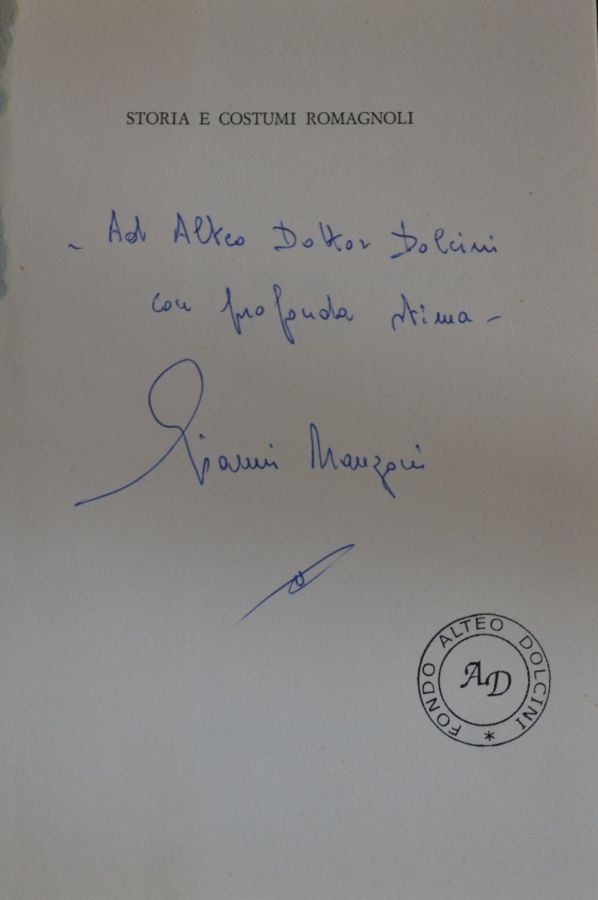 STORIA E COSTUMI ROMAGNOLI
- Ad Alteo Dottor Dolcini
con profonda stima -
Gianni Manzoni
FONDO ALTEO DOLCINI *
AD